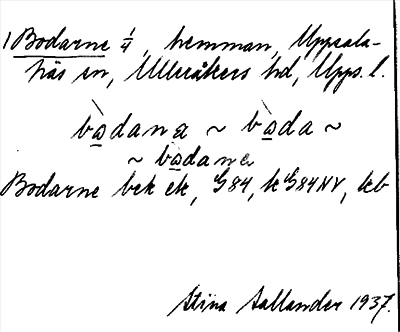 1 Bodarne 1/4, hemman, Uppsala-
näs sn, Ulleråkers hd, Upps. l.
bòdana ~ bòda ~
~ bòdana
Bodarne bek ek, G84, kG84NV, kb
Stina Sallander 1937.